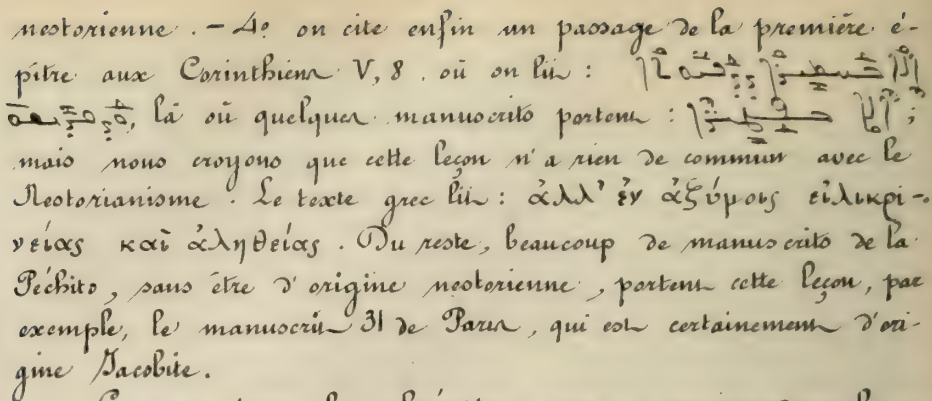 nestorienne. – 4º on cite enfin un passage de la première é-
pître aux Corinthiens V, 8. où on lit :
là où quelques manuscrits portent : ;
mais nous croyons que cette leçon n'a rien de commun avec le
Nestorianisme. Le texte grec lit : ἀλλ' ἐν ἀζύμοις εἰλικρι-
νείας καὶ ἀληθείας. Du reste, beaucoup de manuscrits de la
Péchito, sans être d'origine nestorienne, portent cette leçon, par
exemple, le manuscrit 31 de Paris, qui est certainement d'ori-
gine Jacobite.